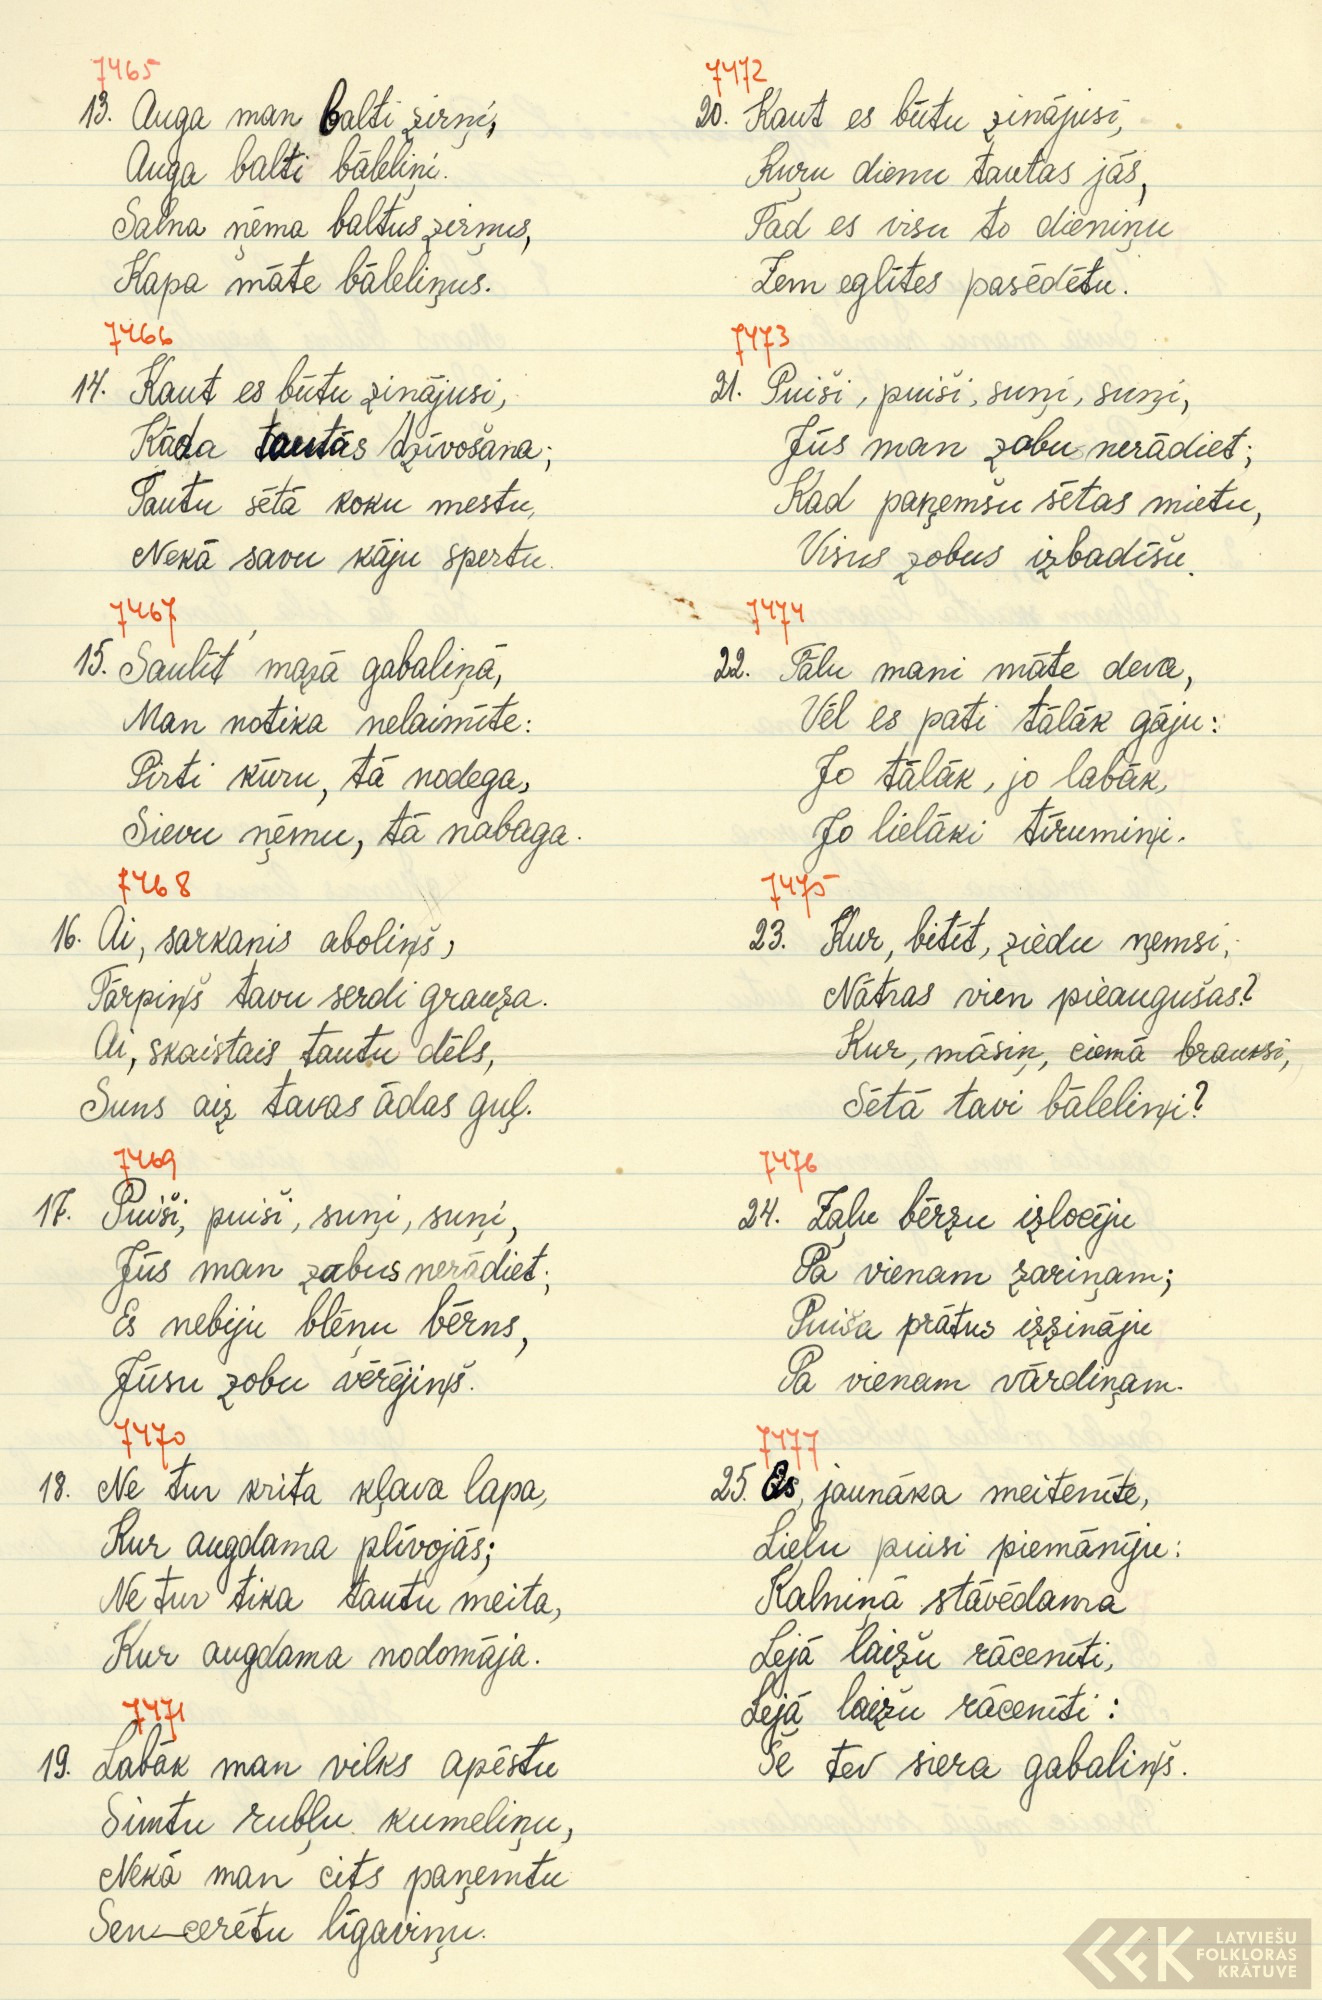 7465
13. Auga man balti zirņi,
Auga balti bāleliņi.
Salna ņēma baltus zirņus,
Kapa māte bāleliņus.
7466
14. Kaut es būtu zinājusi,
Kāda tautās dzīvošana;
Tautu sētā koku mestu,
Nekā savu kāju spertu.
7467
15. Saulīt' mazā gabaliņā,
Man notika nelaimīte:
Pirti kūru, tā nodega,
Sievu ņēmu, tā nabaga.
7468
16. Ai, sarkanis aboliņš,
Tārpiņš tavu serdi grauza.
Ai, skaistais tautu dēls,
Suns aiz tavas ādas guļ.
7469
17. Puiši, puiši, suņi, suņi,
Jūs man zobus nerādiet;
Es nebiju blēņu bērns,
Jūsu zobu vērējiņš.
7470
18. Ne tur krita kļava lapa,
Kur augdama plīvojās;
Ne tur tika tautu meita,
Kur augdama nodomāja.
7471
19. Labāk man vilks apēstu
Simtu rubļu kumeliņu,
Nekā man cits paņemtu
Sen cerētu līgaviņu.
7472
20. Kaut es būtu zinājusi,
Kuŗu dienu tautas jās,
Tad es visu to dieniņu
Zem eglītes pasēdētu.
7473
21. Puiši, puiši, suņi, suņi,
Jūs man zobu nerādiet;
Kad paņemšu sētas mietu,
Visus zobus izbadīšu.
7474
22. Tālu mani māte deva,
Vēl es pati tālāk gāju:
Jo tālāk, jo labāk,
Jo lielāki tīrumiņi.
7475
23. Kur, bitīt, ziedu ņemsi,
Nātras vien pieaugušas?
Kur, māsiņ, ciemā brauksi,
Sētā tavi bāleliņi?
7476
24. Zaļu bērzu izlocīju
Pa vienam zariņam;
Puiša prātus izzināju
Pa vienam vārdiņam.
7477
25. Es, jaunāka meitenīte,
Lielu puisi piemānīju:
Kalniņā stāvēdama
Lejā laižu rācenīti,
Lejā laižu rācenīti:
Še tev siera gabaliņš.
LATVIEŠU
FOLKLORAS
KRĀTUVE